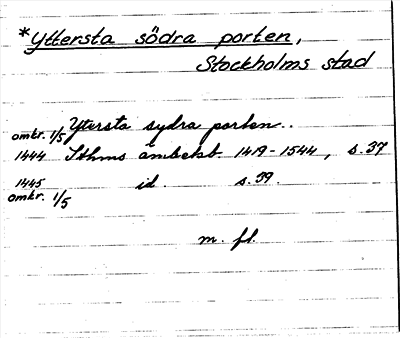 *Yttersta södra porten,
Stockholms stad
omkr. 1/5 Ytersta sydra porten..
1444 Sthms ämbetsb. 1419-1544, s. 37
1445 id. s. 39.
omkr. 1/5
m. fl.